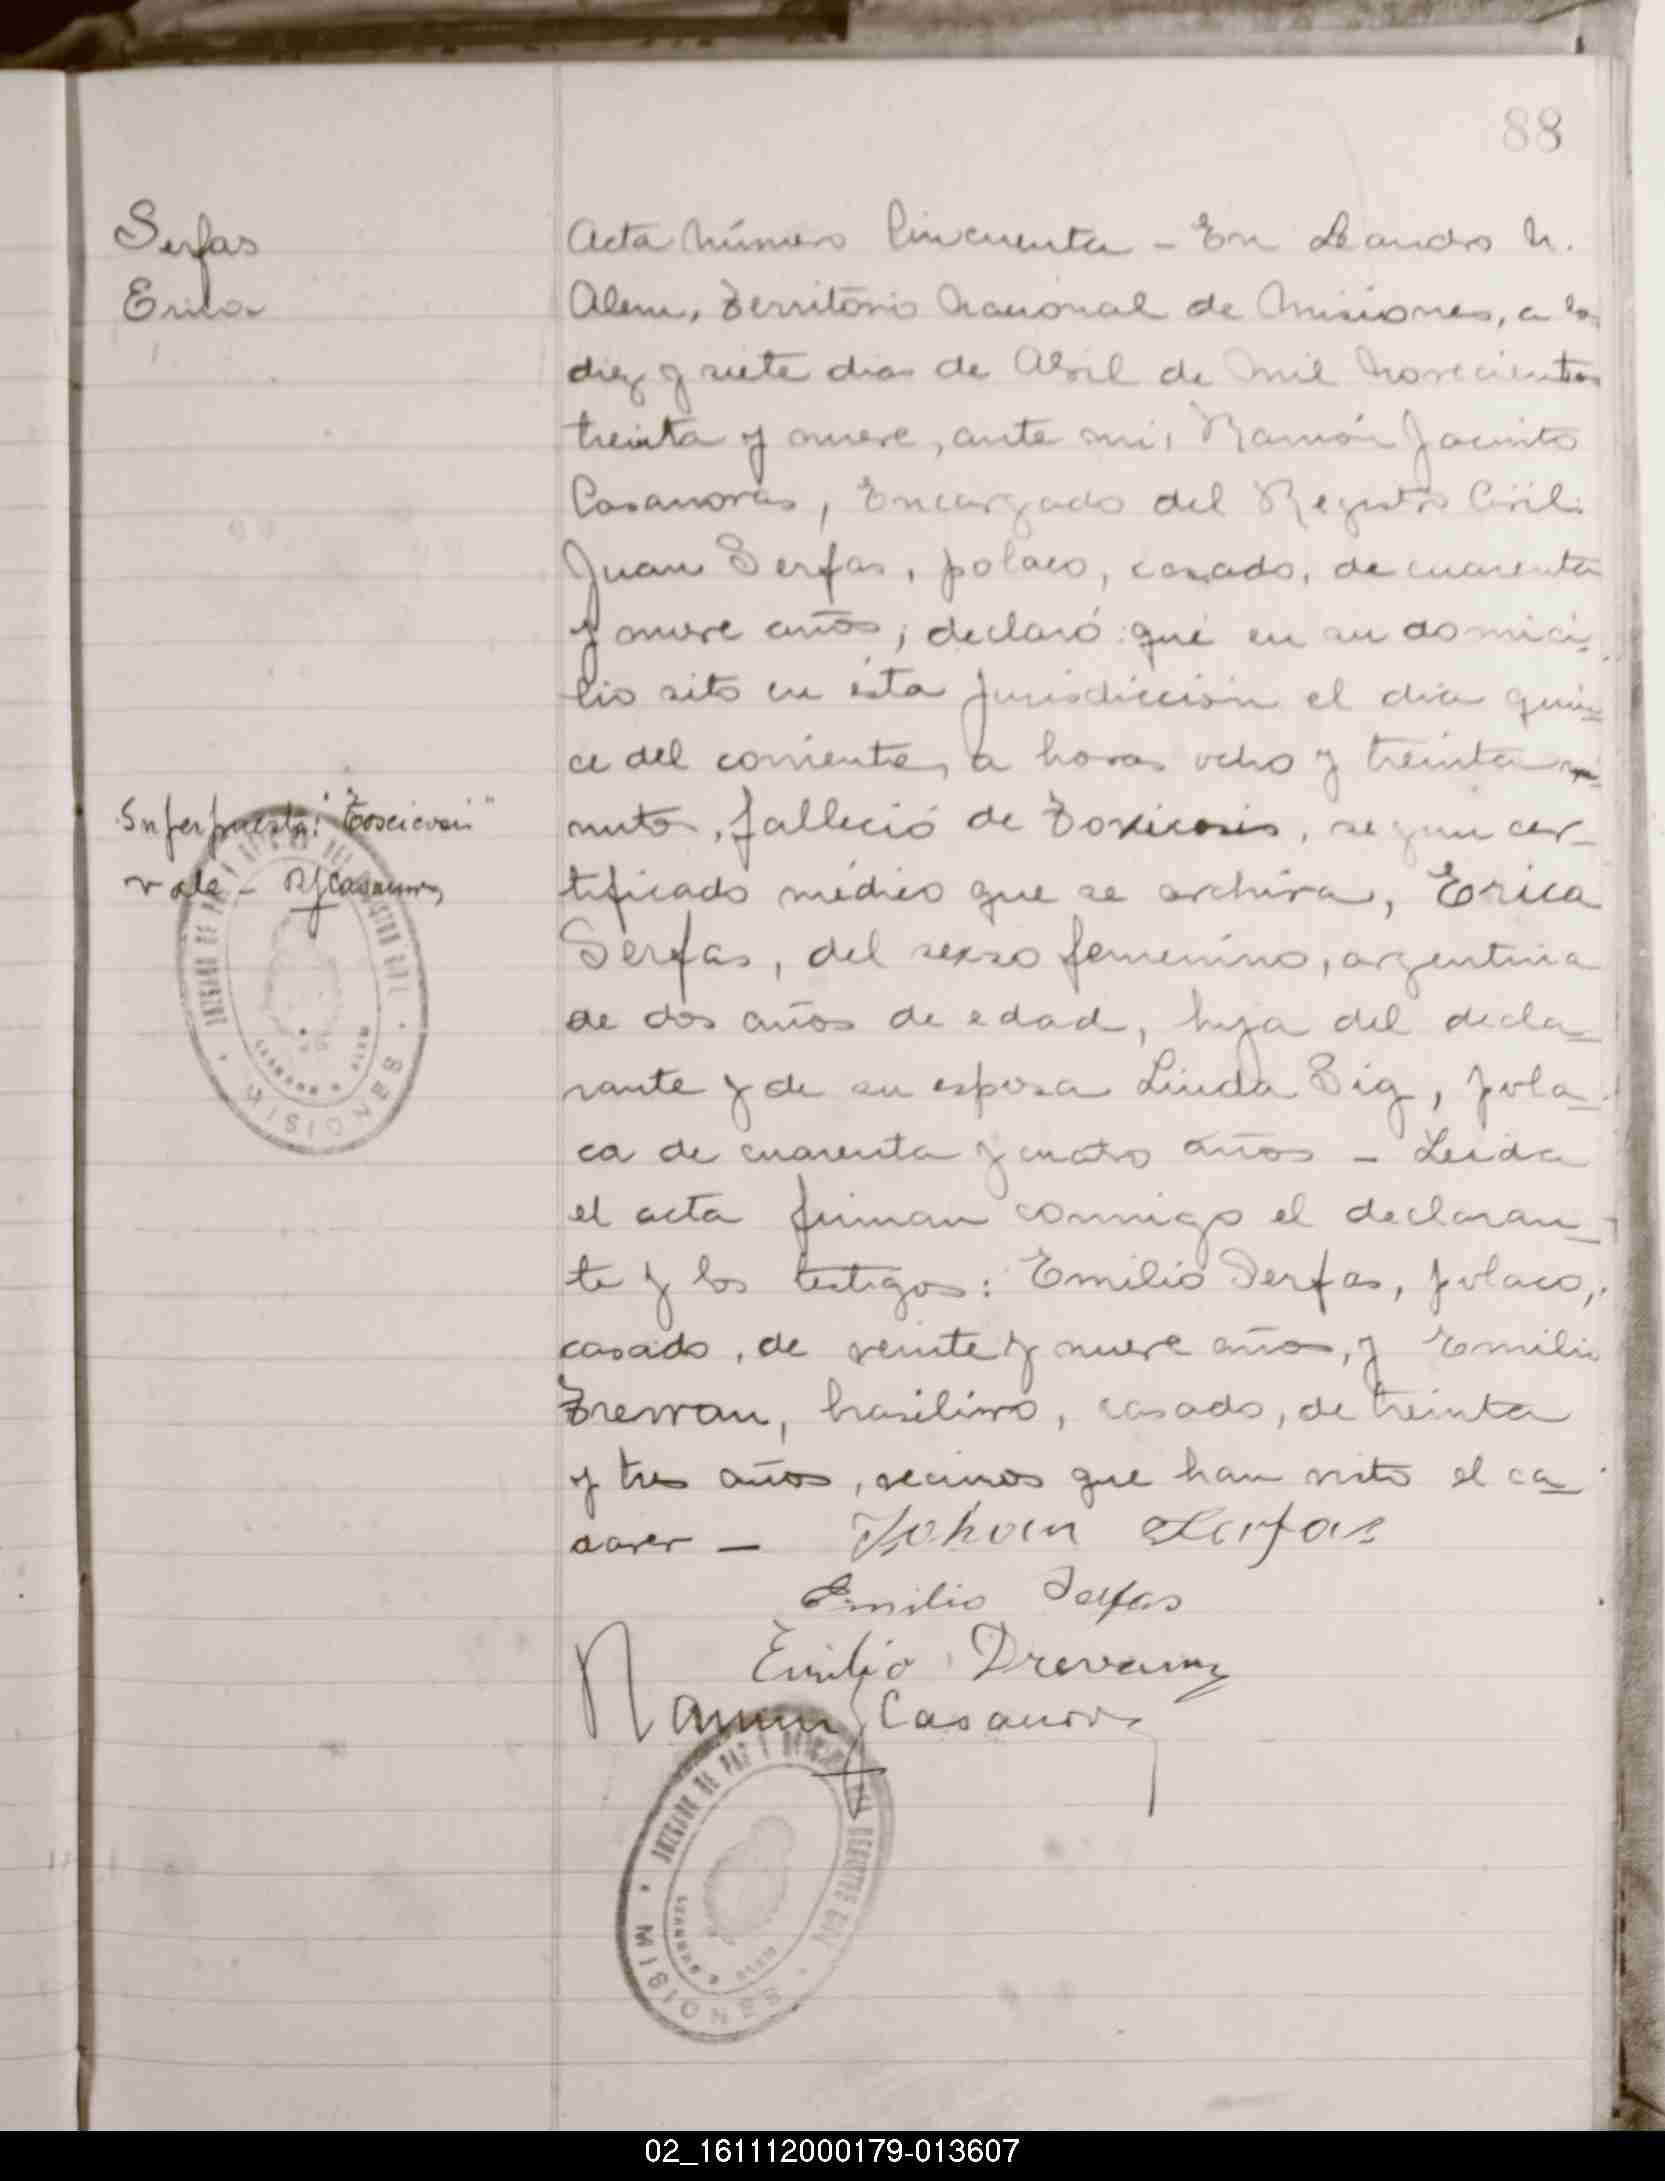 88
Serfas
Erica
Acta número Cincuenta - En Leandro N.
Alem, Territorio Nacional de Misiones, a los
diez y siete dias de Abril de mil novecientos
treinta y nueve, ante mi, Ramón Jacinto
Casanovas, Encargado del Registro Civil.
Juan Serfas, polaco, casado, de cuarenta
y nueve años, declaró: que en su domici-
lio sito en ésta jurisdicción el dia quin-
ce del corriente, a horas ocho y treinta mi-
nutos, falleció de Toxicosis, segun cer-
tificado médico que se archiva, Erica
Serfas, del sexso femenino, argentina
de dos años de edad, hija del decla-
rante y de su esposa Linda Sig, pola-
ca de cuarenta y cuatro años - Leida
el acta firman conmigo el declaran-
te y los testigos: Emilio Serfas, polaco,
casado, de veinte y nueve años, y Emilio
Trewan, brasilino, casado, de treinta
y tres años, vecinos que han visto el ca-
daver -
Superpuesto: "
vale - RJCasanovas
Johan Serfas
Emilio Serfas
Emilio Drevann
Ramon J Casanovas
JUZGADO DE PAZ Y OFICINA DEL REGISTRO CIVIL
MISIONES
JUZGADO DE PAZ Y OFICINA DEL REGISTRO CIVIL
MISIONES
02_161112000179-013607